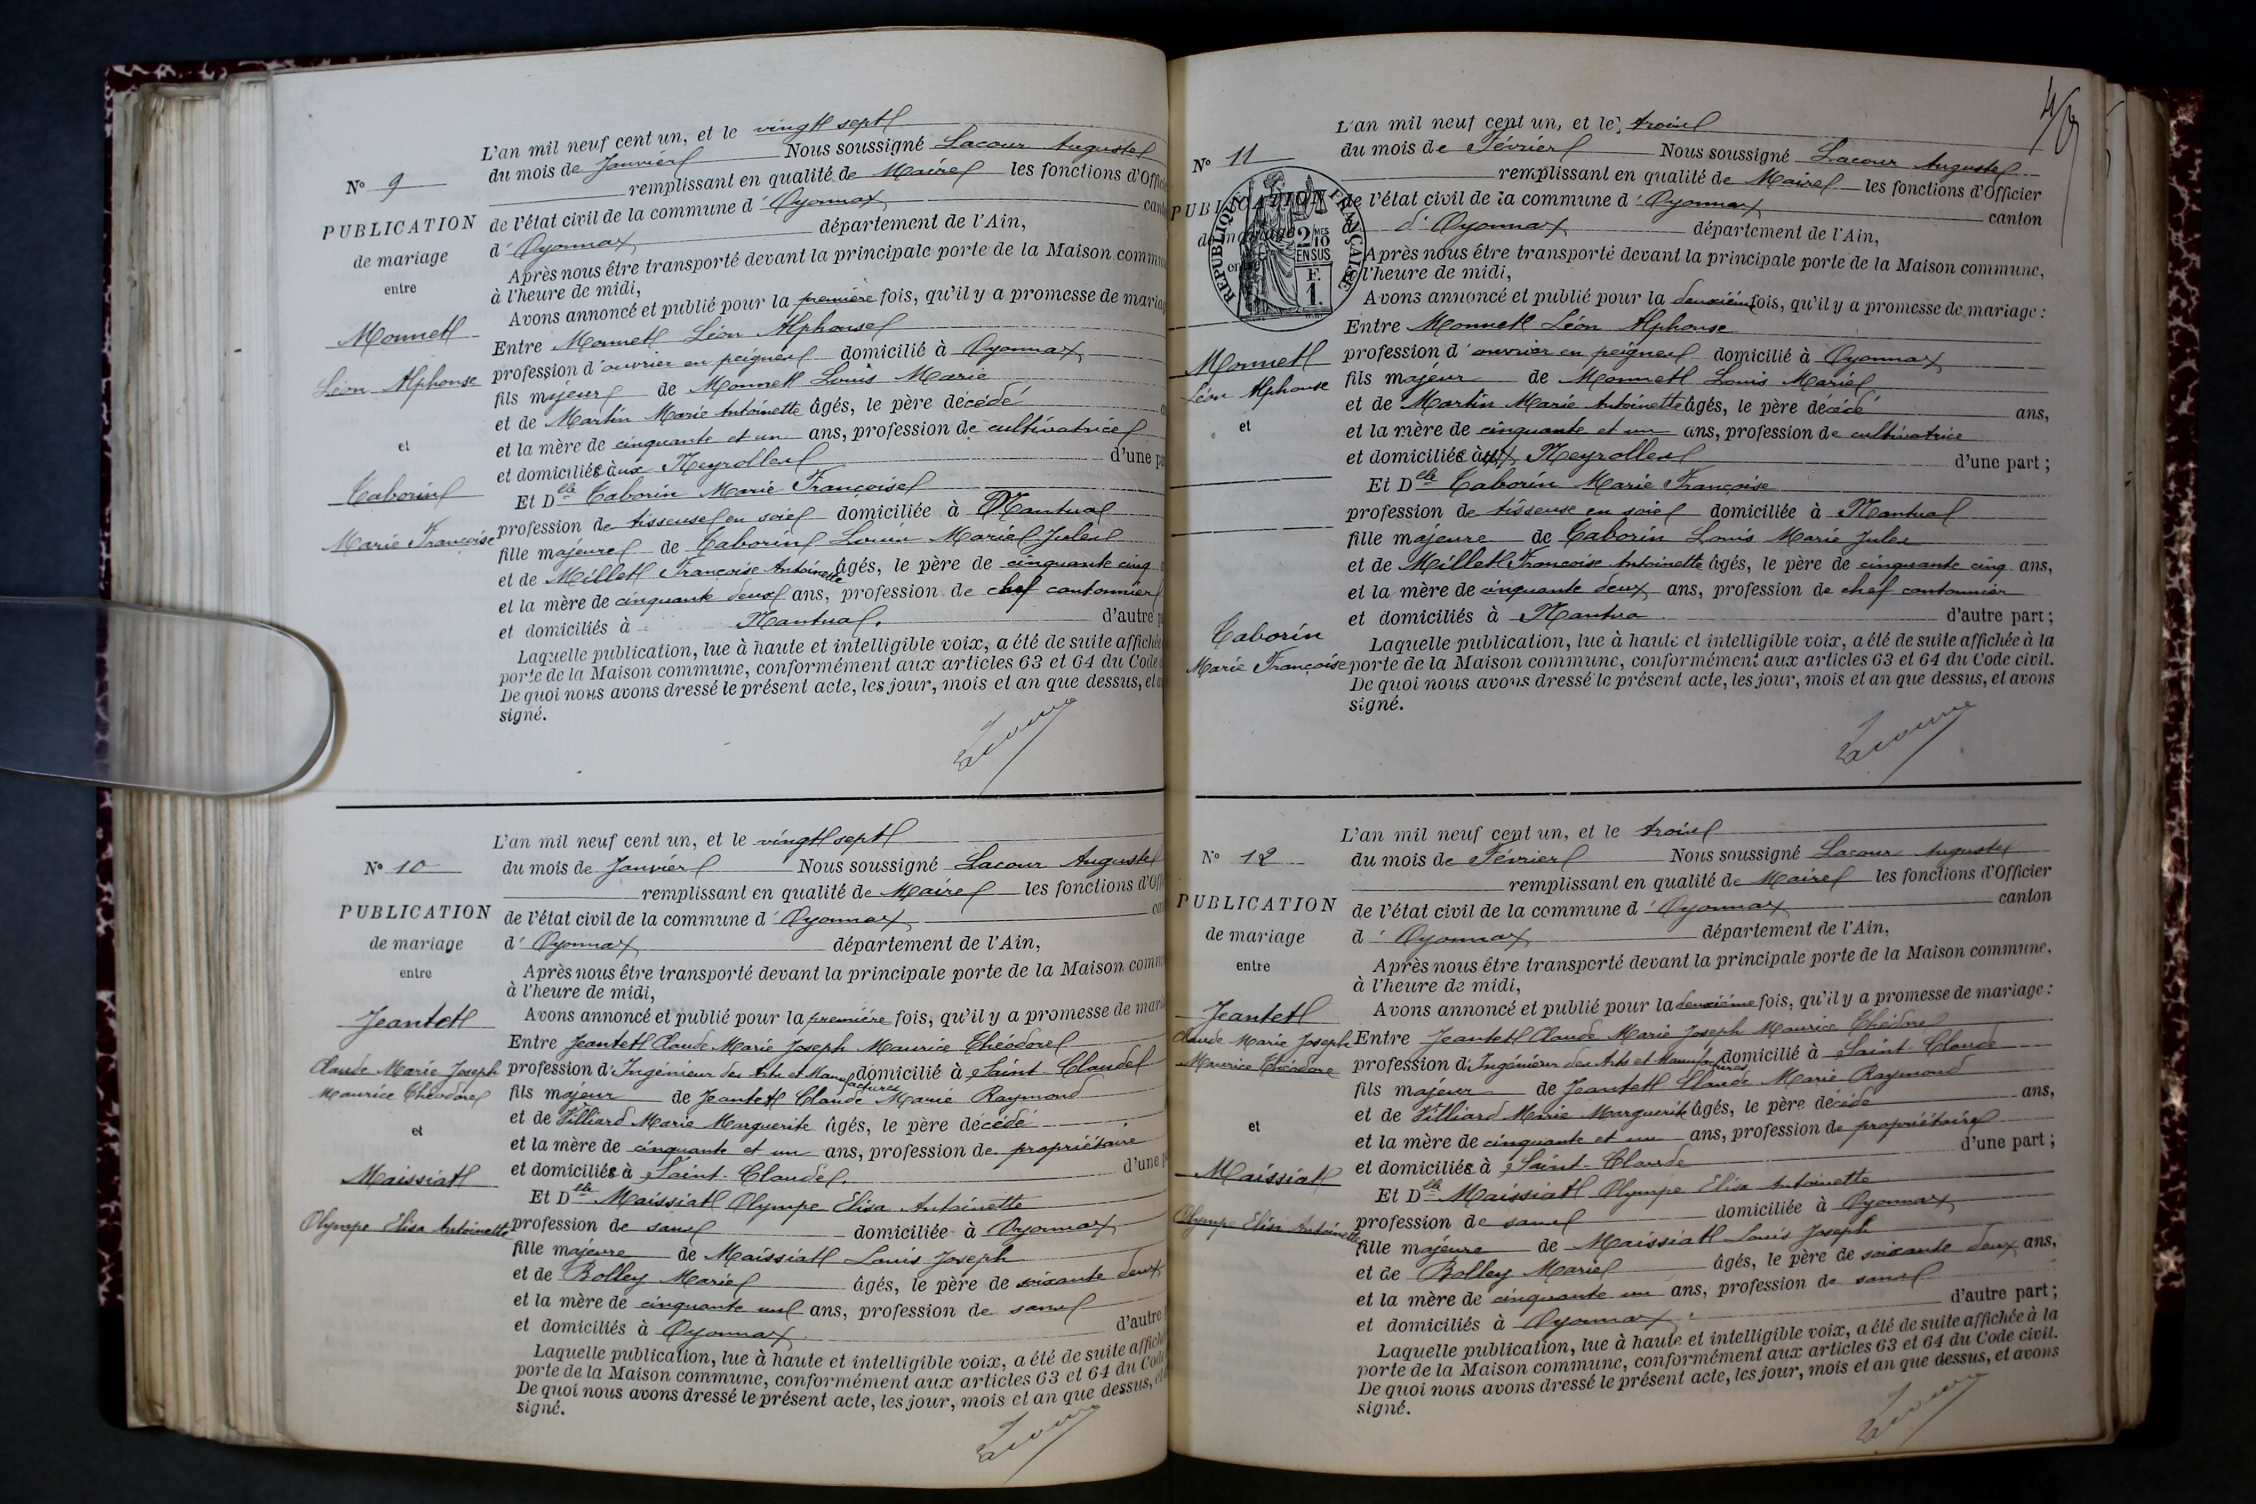 L'an mil neuf cent un, et le vingt sept
du mois de Janvier Nous soussigné Lacour Auguste
remplissant en qualité de Maire les fonctions d'Offic
de l'état civil de la commune d'Oyonnax cant
d'Oyonnax département de l'Ain,
Après nous être transporté devant la principale porte de la Maison commu
à l'heure de midi,
Avons annoncé et publié pour la première fois, qu'il y a promesse de maria
Entre Monnet Léon Alphonse
profession d'ouvrier en peignes domicilié à Oyonnax
fils majeur de Monnet Louis Marie
et de Martin Marie Antoinette âgés, le père décédé
et la mère de cinquante et un ans, profession de cultivatrice
et domiciliés aux Neyrolles d'une pa
Et Dlle Taborin Marie Françoise
profession de tisseuse en soie domiciliée à Nantua
fille majeure de Taborin Louis Marie Jules
et de Millet Françoise Antoinette âgés, le père de cinquante cinq
et la mère de cinquante deux ans, profession de chef cantonnier
et domiciliés à Nantua. d'autre p
Laquelle publication, lue à haute et intelligible voix, a été de suite affichée
porte de la Maison commune, conformément aux articles 63 et 64 du Code
De quoi nous avons dressé le présent acte, les jour, mois et an que dessus, et
signé.
Lacour
N° 9
PUBLICATION
de mariage
entre
Monnet
Léon Alphonse
et
Taborin
Marie Françoise
L'an mil neuf cent un, et le vingt sept
du mois de Janvier Nous soussigné Lacour Auguste
remplissant en qualité de Maire les fonctions d'Offi
de l'état civil de la commune d'Oyonnax can
d'Oyonnax département de l'Ain,
Après nous être transporté devant la principale porte de la Maison comm
à l'heure de midi,
Avons annoncé et publié pour la première fois, qu'il y a promesse de mari
Entre Jeantet Claude Marie Joseph Maurice Théodore
profession d'Ingénieur des Arts et Manufactures domicilié à Saint-Claude
fils majeur de Jeantet Claude Marie Raymond
et de Villiard Marie Marguerite âgés, le père décédé
et la mère de cinquante et un ans, profession de propriétaire
et domiciliés à Saint-Claude. d'une p
Et Dlle Maissiat Olympe Elisa Antoinette
profession de sans domiciliée à Oyonnax
fille majeure de Maissiat Louis Joseph
et de Bolley Marie âgés, le père de soixante deux
et la mère de cinquante un ans, profession de sans
et domiciliés à Oyonnax d'autre
Laquelle publication, lue à haute et intelligible voix, a été de suite affich
porte de la Maison commune, conformément aux articles 63 et 64 du Code
De quoi nous avons dressé le présent acte, les jour, mois et an que dessus,
signé.
Lacour
N° 10
PUBLICATION
de mariage
entre
Jeantet
Claude Marie Joseph
Maurice Théodore
et
Maissiat
Olympe Elisa Antoinette
L'an mil neuf cent un, et le trois
du mois de Février Nous soussigné Lacour Auguste
remplissant en qualité de Maire les fonctions d'Officier
de l'état civil de la commune d'Oyonnax canton
d'Oyonnax département de l'Ain,
Après nous être transporté devant la principale porte de la Maison commune,
l'heure de midi,
Avons annoncé et publié pour la deuxième fois, qu'il y a promesse de mariage :
Entre Monnet Léon Alphonse
profession d'ouvrier en peignes domicilié à Oyonnax
fils majeur de Monnet Louis Marie
et de Martin Marie Antoinette âgés, le père décédé ans,
et la mère de cinquante et un ans, profession de cultivatrice
et domiciliés aux Neyrolles d'une part ;
Et Dlle Taborin Marie Françoise
profession de tisseuse en soie domiciliée à Nantua
fille majeure de Taborin Louis Marie Jules
et de Millet Françoise Antoinette âgés, le père de cinquante cinq ans,
et la mère de cinquante deux ans, profession de chef cantonnier
et domiciliés à Nantua d'autre part ;
Laquelle publication, lue à haute et intelligible voix, a été de suite affichée à la
porte de la Maison commune, conformément aux articles 63 et 64 du Code civil.
De quoi nous avons dressé le présent acte, les jour, mois et an que dessus, et avons
signé.
Lacour
N° 11
PUBLICATION
de mariage
entre
RÉPUBLIQUE FRANÇAISE
2/10 MES
EN SUS
F.
1.
Monnet
Léon Alphonse
et
Taborin
Marie Françoise
L'an mil neuf cent un, et le trois
du mois de Février Nous soussigné Lacour Auguste
remplissant en qualité de Maire les fonctions d'Officier
de l'état civil de la commune d'Oyonnax canton
d'Oyonnax département de l'Ain,
Après nous être transporté devant la principale porte de la Maison commune,
à l'heure de midi,
Avons annoncé et publié pour la deuxième fois, qu'il y a promesse de mariage :
Entre Jeantet Claude Marie Joseph Maurice Théodore
profession d'Ingénieur des Arts et Manufactures domicilié à Saint-Claude
fils majeur de Jeantet Claude Marie Raymond
et de Villiard Marie Marguerite âgés, le père décédé ans,
et la mère de cinquante et un ans, profession de propriétaire
et domiciliés à Saint-Claude d'une part ;
Et Dlle Maissiat Olympe Elisa Antoinette
profession de sans domiciliée à Oyonnax
fille majeure de Maissiat Louis Joseph
et de Bolley Marie âgés, le père de soixante deux ans,
et la mère de cinquante un ans, profession de sans
et domiciliés à Oyonnax d'autre part ;
Laquelle publication, lue à haute et intelligible voix, a été de suite affichée à la
porte de la Maison commune, conformément aux articles 63 et 64 du Code civil.
De quoi nous avons dressé le présent acte, les jour, mois et an que dessus, et avons
signé.
Lacour
N° 12
PUBLICATION
de mariage
entre
Jeantet
Claude Marie Joseph
Maurice Théodore
et
Maissiat
Olympe Elisa Antoinette